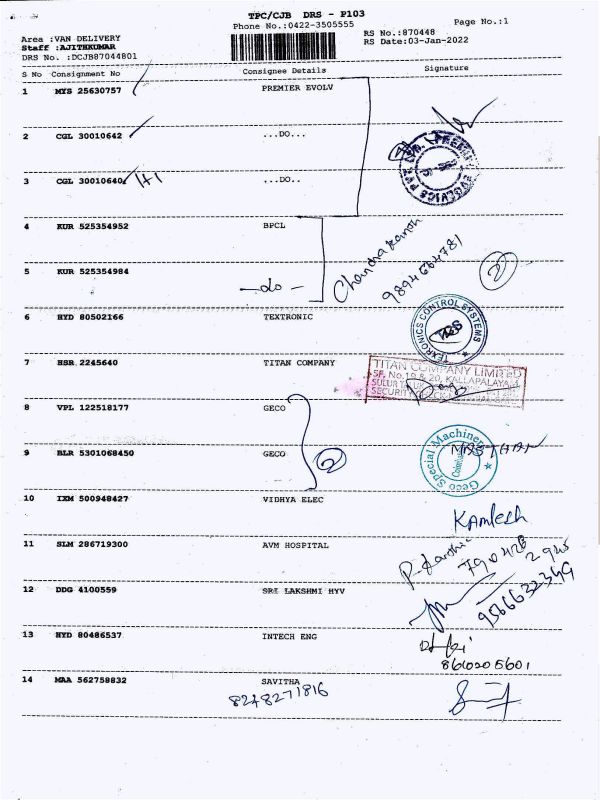 TPC/CJB DRS - P103
Phone No.:0422-3505555
Page No.:1
Area :VAN DELIVERY
Staff :AJITHKUMAR
DRS No. :DCJB87044801
RS No.:870448
RS Date:03-Jan-2022
S No Consignment No Consignee Details Signature
1 MYS 25630757 PREMIER EVOLV
2 CGL 30010642 ...DO...
3 CGL 30010640 ...DO..
4 KUR 525354952 BPCL
Chandra
9894664781
2
5 KUR 525354984 -do-
6 HYD 80502166 TEXTRONIC
TEXRONICS CONTROL SYSTEMS
TCS
7 HSR 2245640 TITAN COMPANY
TITAN COMPANY LIMITED
SF. No.19 & 20, KALLAPALAYAM
SULUR
SECURITY CHECK
8 VPL 122518177 GECO
9 BLR 5301068450 GECO
2
Geco Special Machines
Coimbatore
MASTHAN
10 IXM 500948427 VIDHYA ELEC
Kamlesh
11 SLM 286719300 AVM HOSPITAL
790428
2945
12 DDG 4100559 SRI LAKSHMI HYV
9566632349
13 HYD 80486537 INTECH ENG
8610205601
14 MAA 562758832 SAVITHA
8248271816